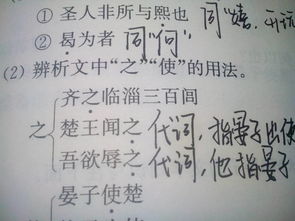 ① 圣人非所与熙也 同"嬉",开玩
② 曷为者 同"何"
(2) 辨析文中"之""使"的用法。
齐之临淄三百闾
之 楚王闻之 代词,指晏子出使
吾欲辱之 代词,他 指晏子
晏子使楚